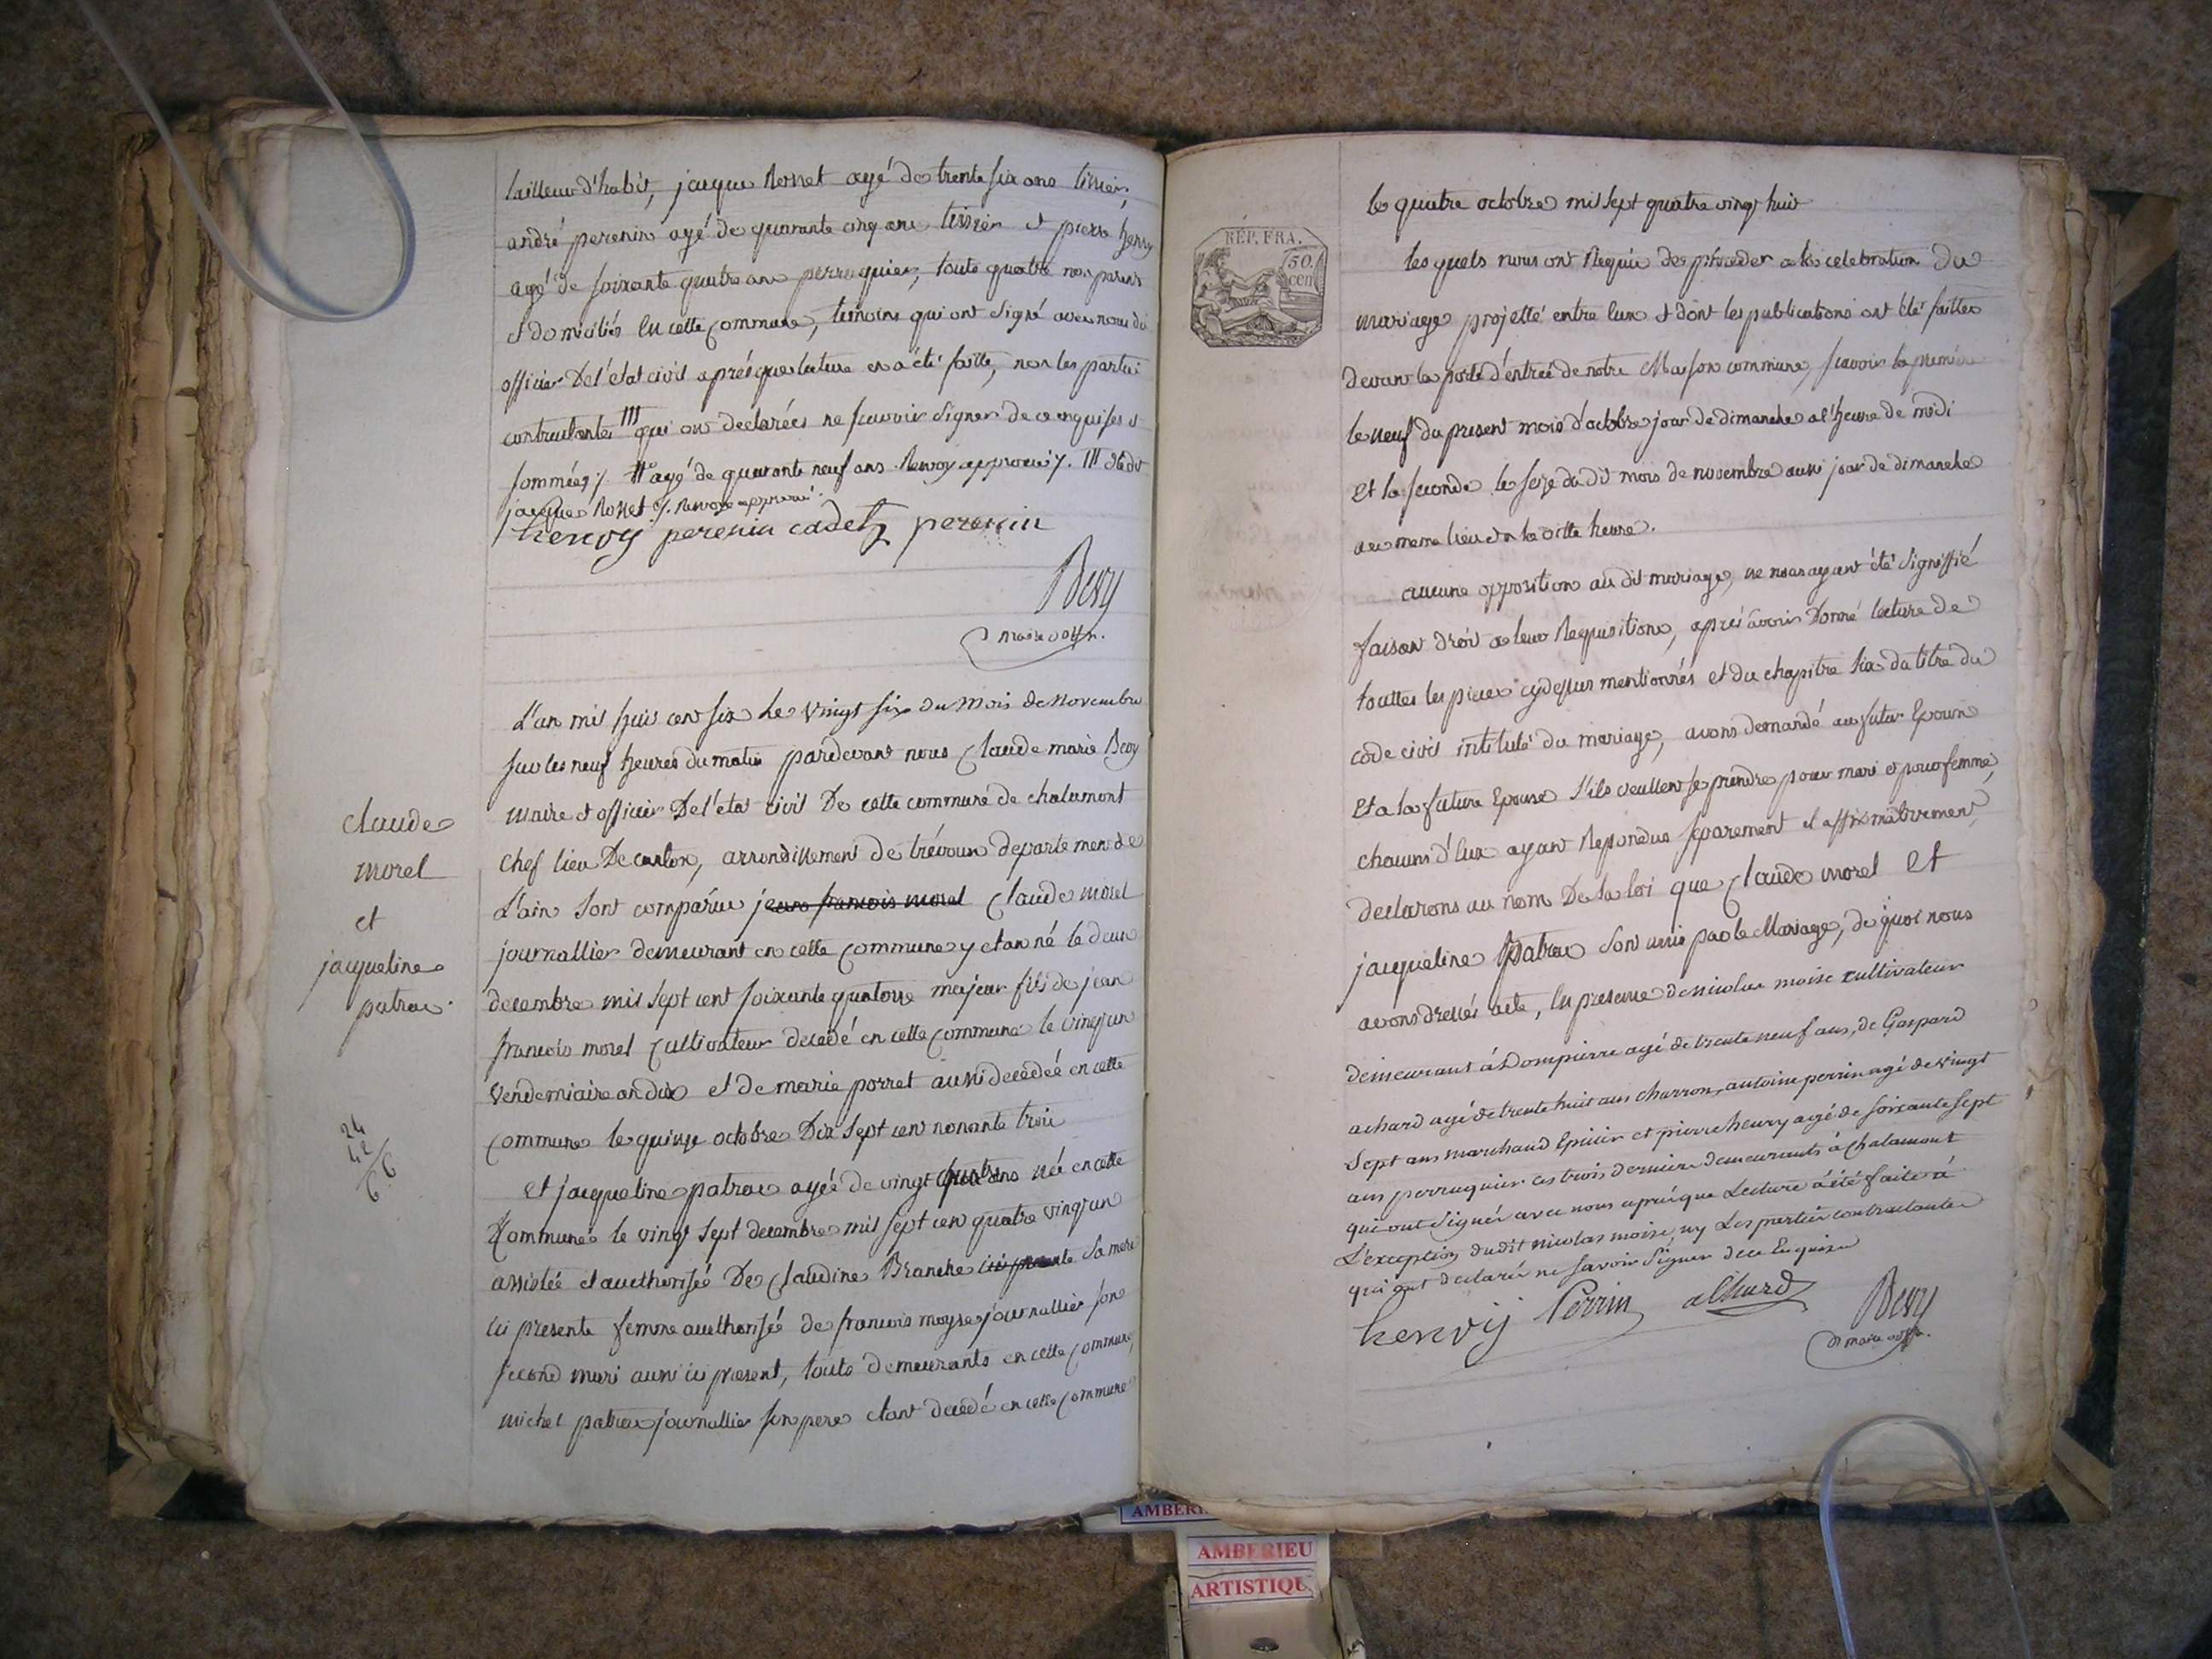 tailleur d'habit, jacque Rosset agé de trente six ans tissier,
andré perenin agé de quarante cinq ans tissier et pierre henry
agé de soixante quatre ans perruquier, touts quatre non parents
et domiciliés en cette commune, temoins qui ont signé avec nous dit
officier De l'etat civil après que lecture en a été faitte, non les parties
contractantes III qui ont declarées ne scavoir signer de ce enquises et
sommées /. # agé de quarante neuf ans Renvoy approuvé /. III et du
jacques Rosset /. Renvoye approuvé.
henry perenin cadet perenin
Bevy
maire off.
L'an mil huit cent six Le vingt six du mois de Novembre
sur les neuf heures du matin pardevant nous Claude marie Bevy
maire et officier De l'etat civil De cette commune de chalamont
chef lieu De canton, arrondissement de trévoux departement de
L'ain sont comparu jean francois morel Claude morel
journallier demeurant en cette Commune y etant né le deux
decembre mil sept cent soixante quatorze majeur fils de jean
francois morel Cultivateur decedé en cette Commune le vingt un
Vendemiaire an dix et de marie porret aussi decedée en cette
Commune le quinze octobre Dix sept cent nonante trois
Et jacqueline patrac agée de vingt quatre ans née en cette
Commune le vingt sept decembre mil sept cent quatre vingt un
assistée et authorisée De Claudine Branche ici presente sa mere
ici presente femme authorisée de francois moyse journallier son
second mari aussi ici present, touts demeurants en cette Commune,
michel patrac journallier son pere etant decedé en cette Commune
claude
morel
et
jacqueline
patrac.
24
42
66
RÉP. FRA.
50.
cen
le quatre octobre mil sept quatre vingt huit
les quels nous ont Requis de proceder a la celebration du
mariage projetté entre eux et dont les publications ont été faittes
devant la porte d'entrée de notre Maison commune, scavoir la premiere
le neuf du present mois d'octobre jour de dimanche a l'heure de midi
Et la seconde le seize du dit mois de novembre aussi jour de dimanche
au meme lieu et a la ditte heure.
aucune opposition au dit mariage, ne nous ayant été signiffié
faisant droit a leur Requisition, après avoir Donné lecture de
touttes les pieces cydessus mentionnés et du chapitre six du titre du
code civil intitulé du mariage, avons demandé au futur Epoux
Et a la future Epouse s'ils veullent se prendre pour mari et pour femme,
chacuns d'eux ayant Repondus separement et affirmativement,
declarons au nom De la loi que Claude morel Et
jacqueline patrac sont unis par le Mariage, de quoi nous
avons dressés acte, En presence de nicolas moise cultivateur
demeurant à Dompierre agé de trente neuf ans, de Gaspard
achard agé de trente huit ans charron, antoine perrin agé de vingt
Sept ans marchand Epicier et pierre henry agé de soixante sept
ans perruquier ces trois derniers demeurants à Chalamont
qui ont signés avec nous après que Lecture a été faite à
L'exception dudit nicolas moise, ny Les parties contractantes
qui ont declarés ne savoir signer de ce Enquises
henry Perrin achard Bevy
maire off.
AMBERI
AMBERIEU
ARTISTIQU